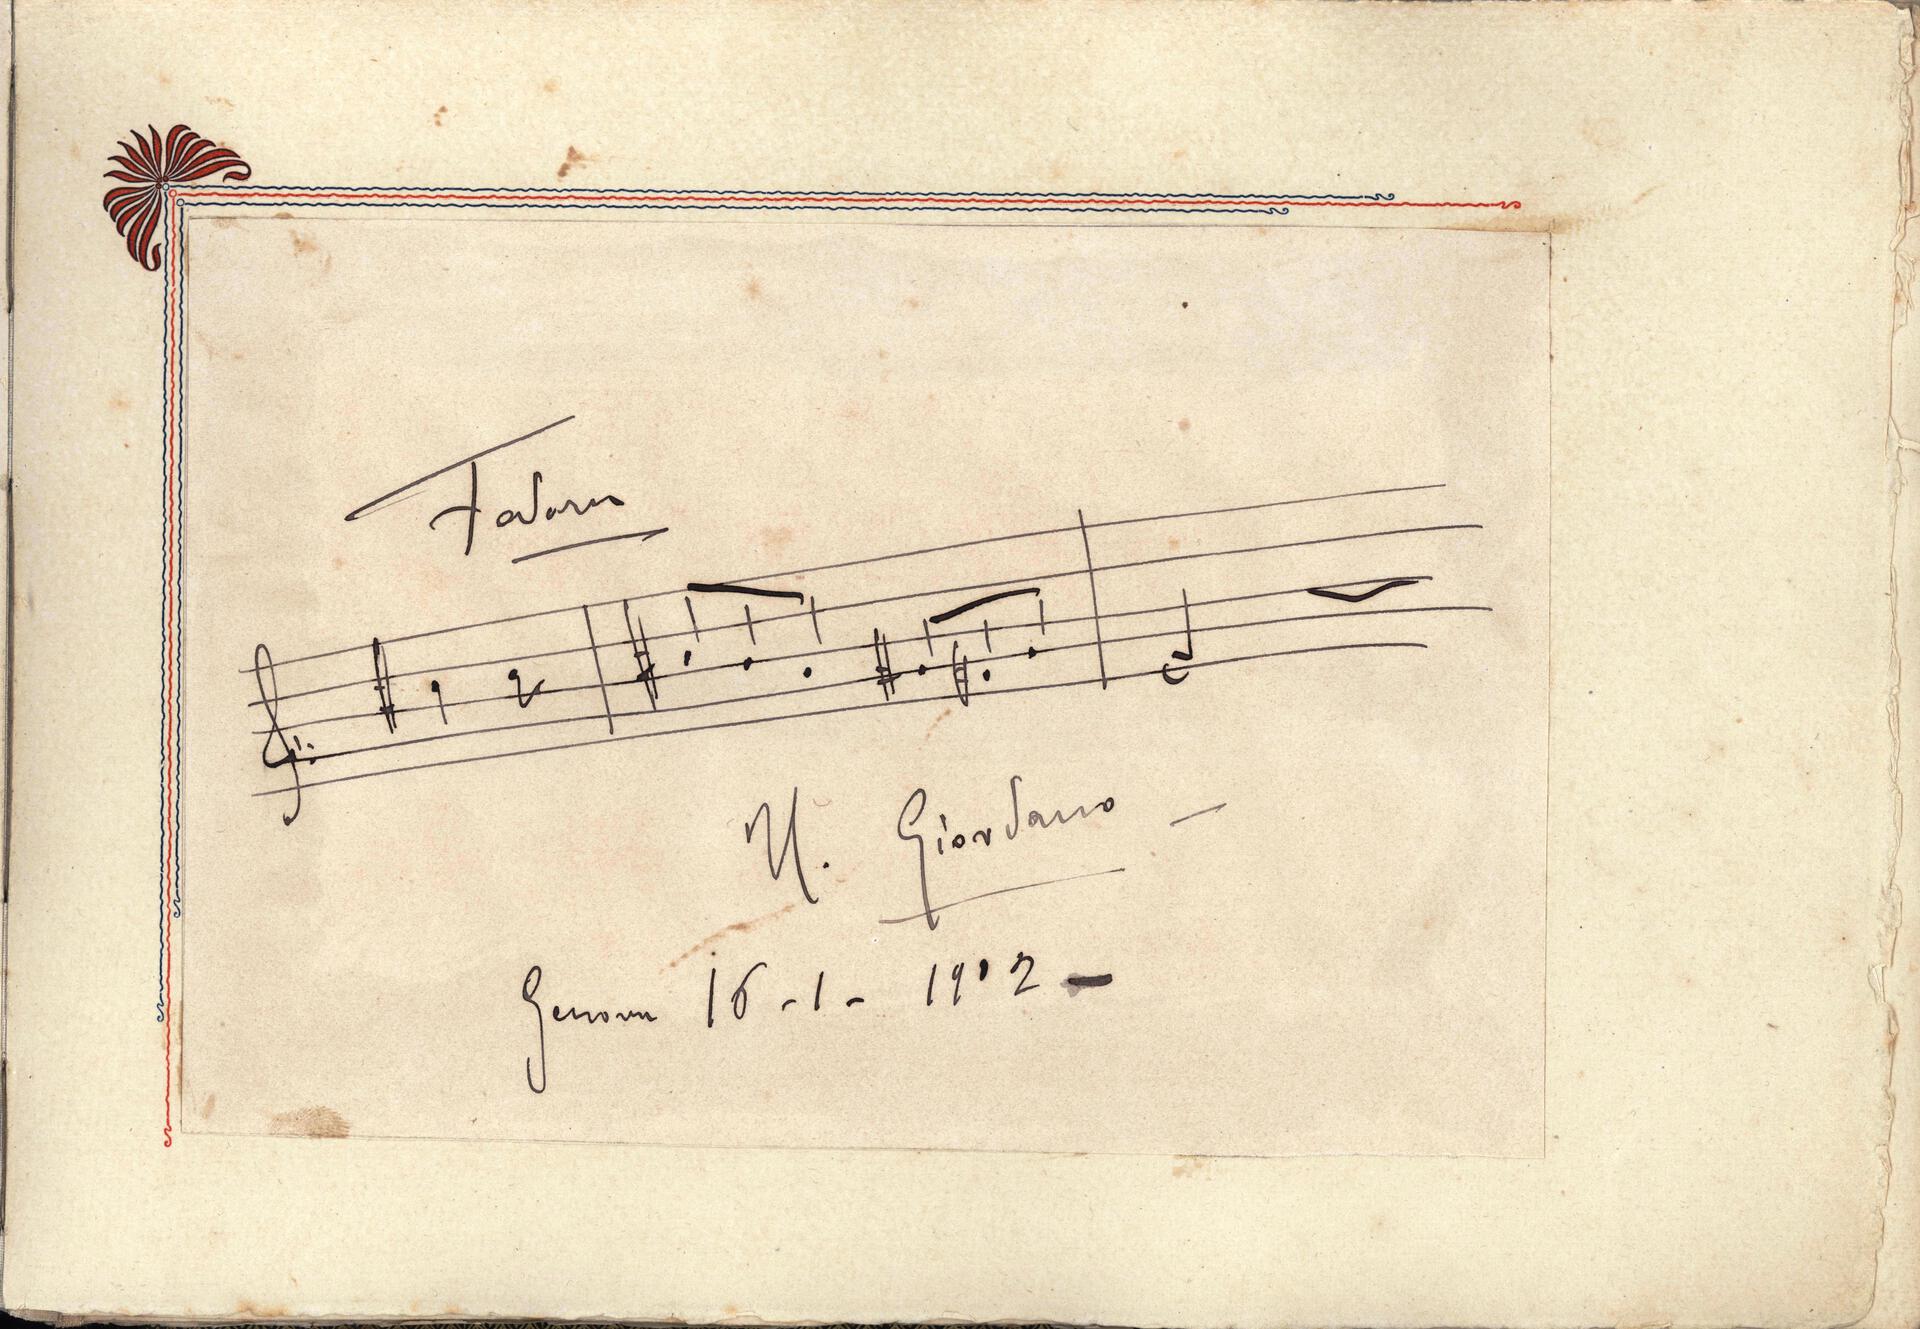 Fedora
U. Giordano
Genova 16-1-1902